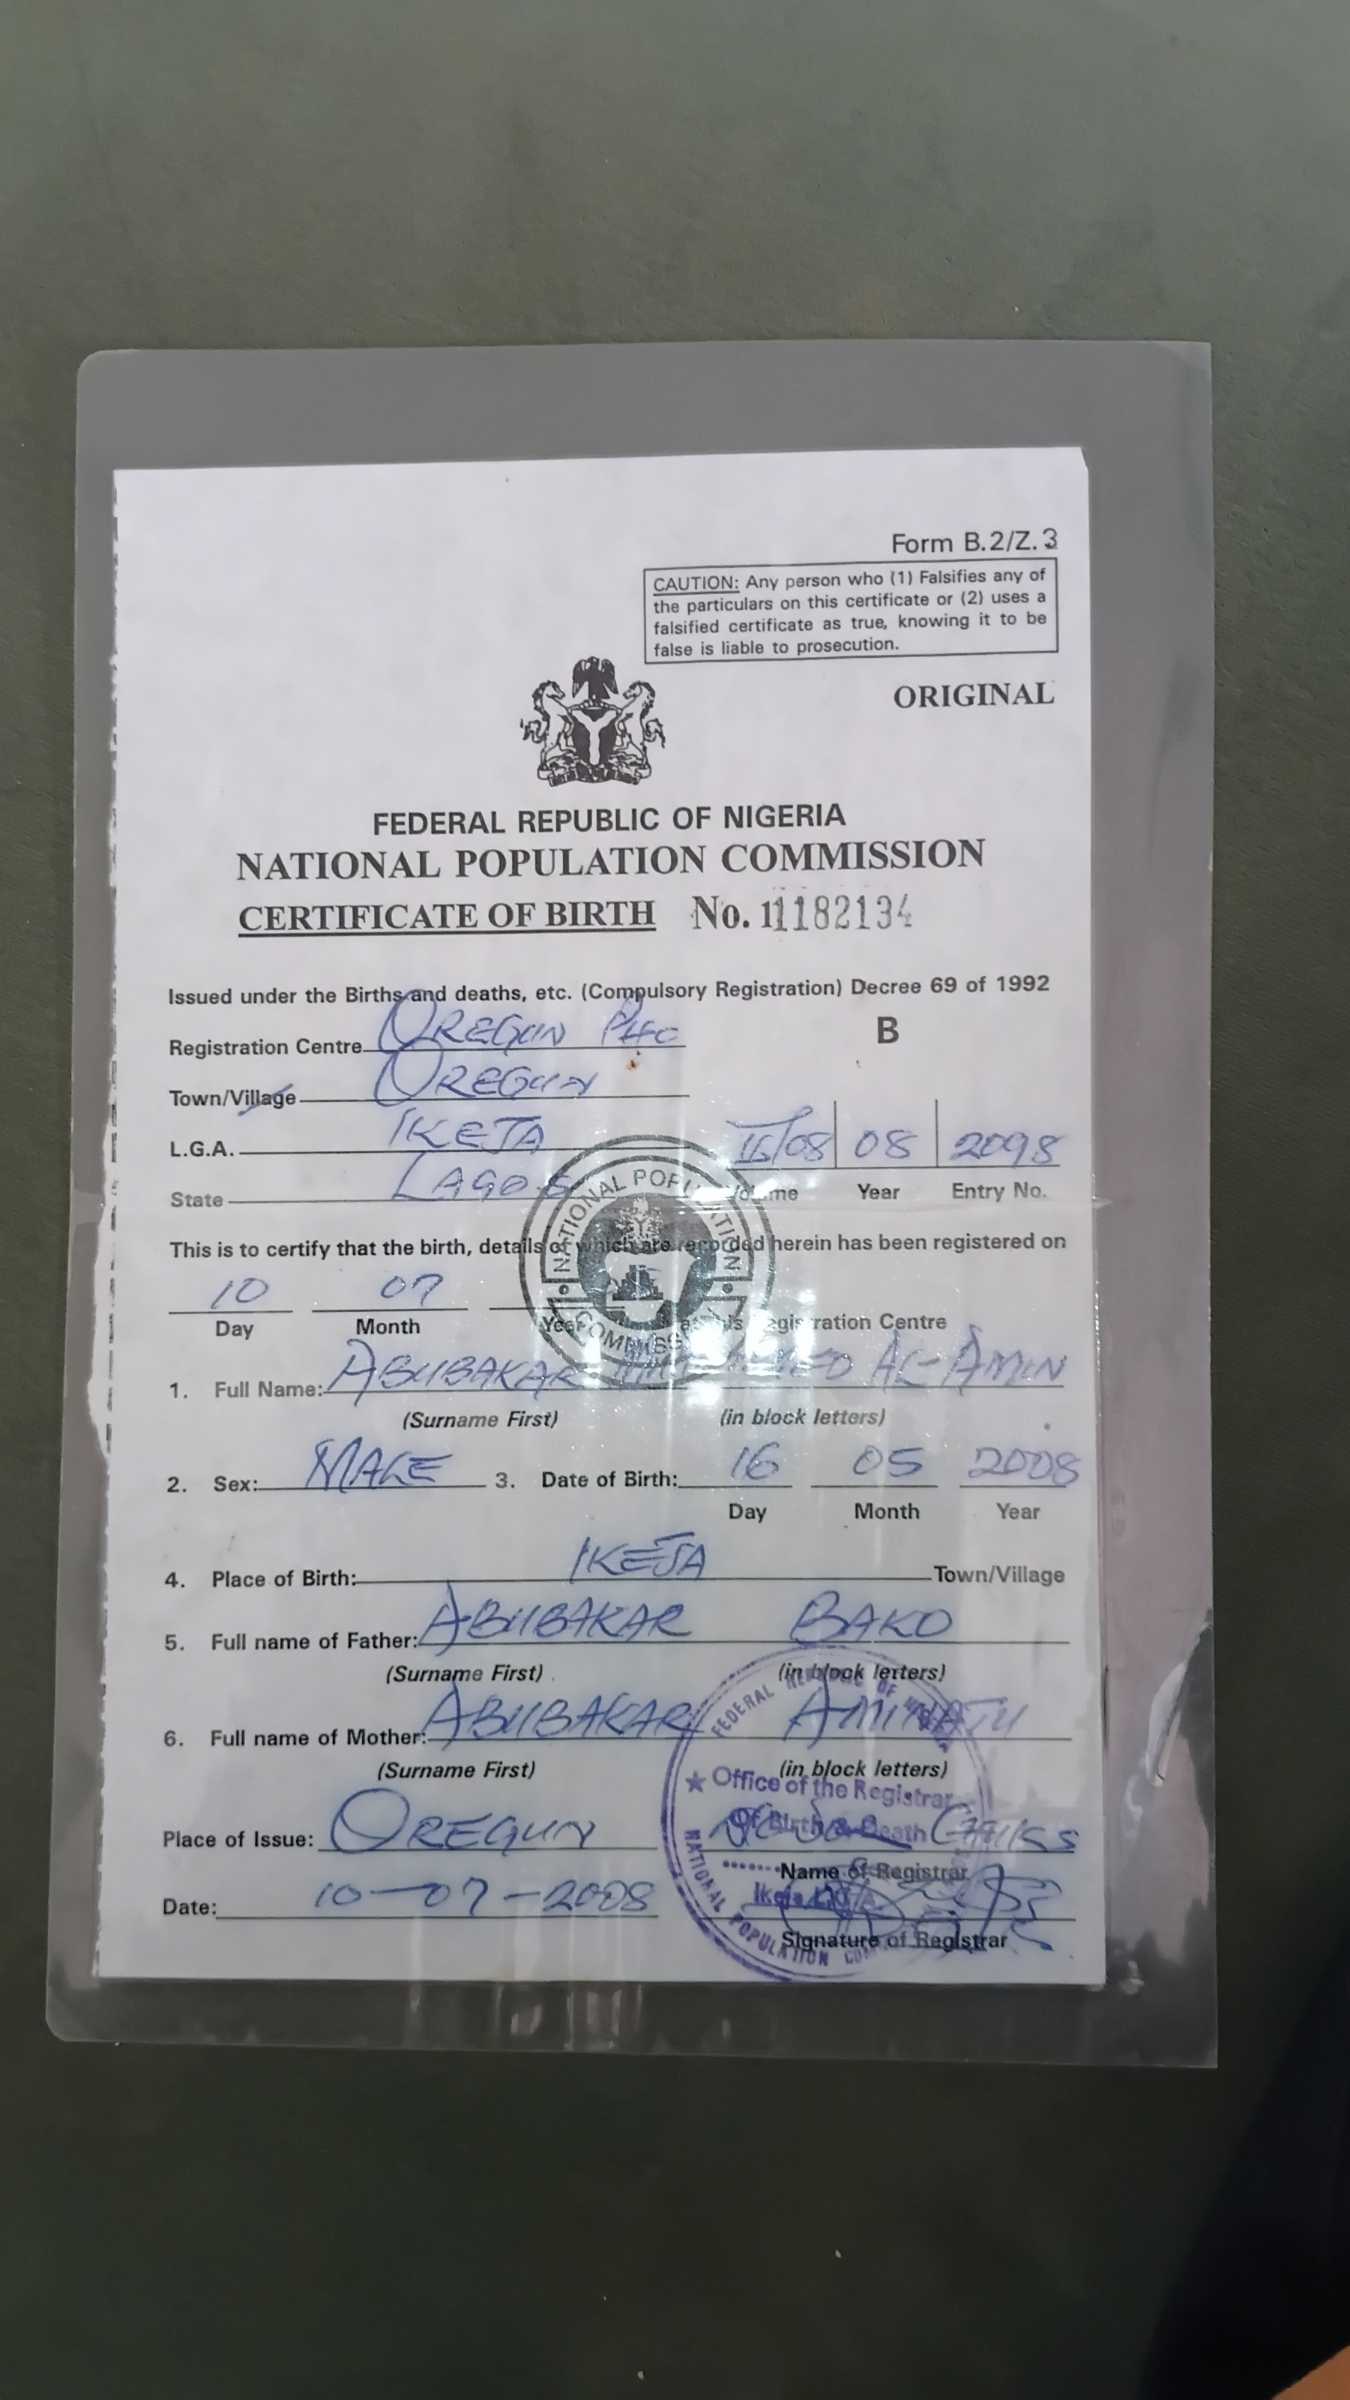 Form B.2/Z.3
CAUTION: Any person who (1) Falsifies any of
the particulars on this certificate or (2) uses a
falsified certificate as true, knowing it to be
false is liable to prosecution.
ORIGINAL
FEDERAL REPUBLIC OF NIGERIA
NATIONAL POPULATION COMMISSION
CERTIFICATE OF BIRTH No. 11182134
Issued under the Births and deaths, etc. (Compulsory Registration) Decree 69 of 1992
Registration Centre OREGUN PHC B
Town/Village OREGUN
L.G.A. IKEJA /08 08 2098
State LAGOS Volume Year Entry No.
NATIONAL POPULATION COMMISSION
This is to certify that the birth, details of which are recorded herein has been registered on
10 07
Day Month Year Registration Centre
1. Full Name: ABUBAKAR AL-AMIN
(Surname First) (in block letters)
2. Sex: MALE 3. Date of Birth: 16 05 2008
Day Month Year
4. Place of Birth: IKEJA Town/Village
5. Full name of Father: ABUBAKAR BAKO
(Surname First) (in block letters)
6. Full name of Mother: ABUBAKAR AMINATU
(Surname First) (in block letters)
Place of Issue: OREGUN
Name of Registrar
Date: 10-07-2008
Signature of Registrar
FEDERAL REPUBLIC OF
Office of the Registrar
Of Birth & Death
Ikeja
NATIONAL POPULATION